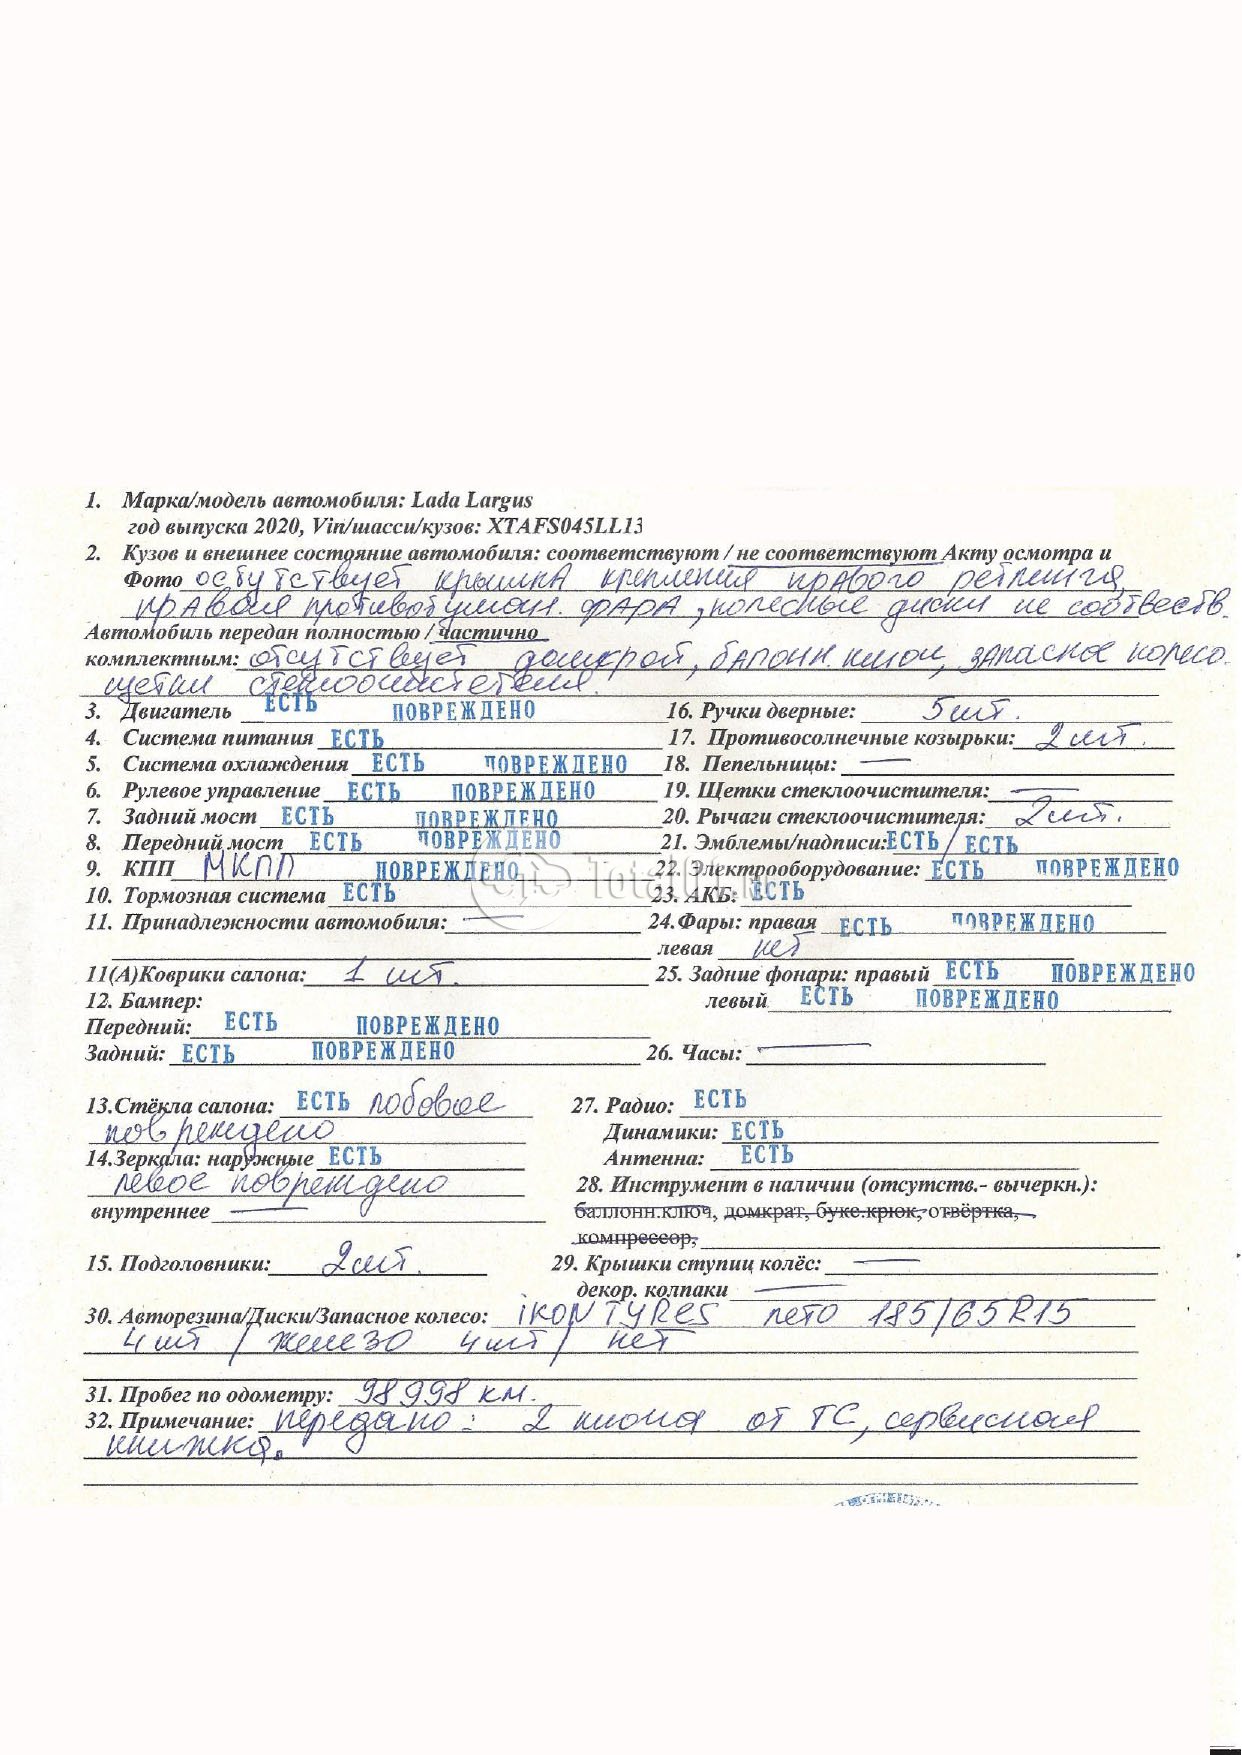 1. Марка/модель автомобиля: Lada Largus
год выпуска 2020, Vin/шасси/кузов: XTAFS045LL13
2. Кузов и внешнее состояние автомобиля: соответствуют / не соответствуют Акту осмотра и
Фото отсутствует крышка крепления правого рейлинга,
правая противотуман. фара, колесные диски не соответств.
Автомобиль передан полностью / частично
комплектным: отсутствует домкрат, балонн. ключ, запасное колесо.
щетки стеклоочистителя.
3. Двигатель ЕСТЬ ПОВРЕЖДЕНО 16. Ручки дверные: 5 шт.
4. Система питания ЕСТЬ 17. Противосолнечные козырьки: 2 шт.
5. Система охлаждения ЕСТЬ ПОВРЕЖДЕНО 18. Пепельницы: —
6. Рулевое управление ЕСТЬ ПОВРЕЖДЕНО 19. Щетки стеклоочистителя: —
7. Задний мост ЕСТЬ ПОВРЕЖДЕНО 20. Рычаги стеклоочистителя: 2 шт.
8. Передний мост ЕСТЬ ПОВРЕЖДЕНО 21. Эмблемы/надписи: ЕСТЬ / ЕСТЬ
9. КПП МКПП ПОВРЕЖДЕНО 22. Электрооборудование: ЕСТЬ ПОВРЕЖДЕНО
10. Тормозная система ЕСТЬ 23. АКБ: ЕСТЬ
11. Принадлежности автомобиля: — 24.Фары: правая ЕСТЬ ПОВРЕЖДЕНО
левая нет
11(А)Коврики салона: 1 шт. 25. Задние фонари: правый ЕСТЬ ПОВРЕЖДЕНО
12. Бампер: левый ЕСТЬ ПОВРЕЖДЕНО
Передний: ЕСТЬ ПОВРЕЖДЕНО
Задний: ЕСТЬ ПОВРЕЖДЕНО 26. Часы: —
13.Стёкла салона: ЕСТЬ лобовое 27. Радио: ЕСТЬ
повреждено Динамики: ЕСТЬ
14.Зеркала: наружные ЕСТЬ Антенна: ЕСТЬ
левое повреждено 28. Инструмент в наличии (отсутств.- вычеркн.):
внутреннее — баллонн.ключ, домкрат, букс.крюк, отвёртка,
компрессор,
15. Подголовники: 2 шт. 29. Крышки ступиц колёс: —
декор. колпаки —
30. Авторезина/Диски/Запасное колесо: IKON TYRES лето 185/65 R15
4 шт / железо 4 шт / нет
31. Пробег по одометру: 98998 км.
32. Примечание: передано: 2 ключа от ТС, сервисная
книжка.